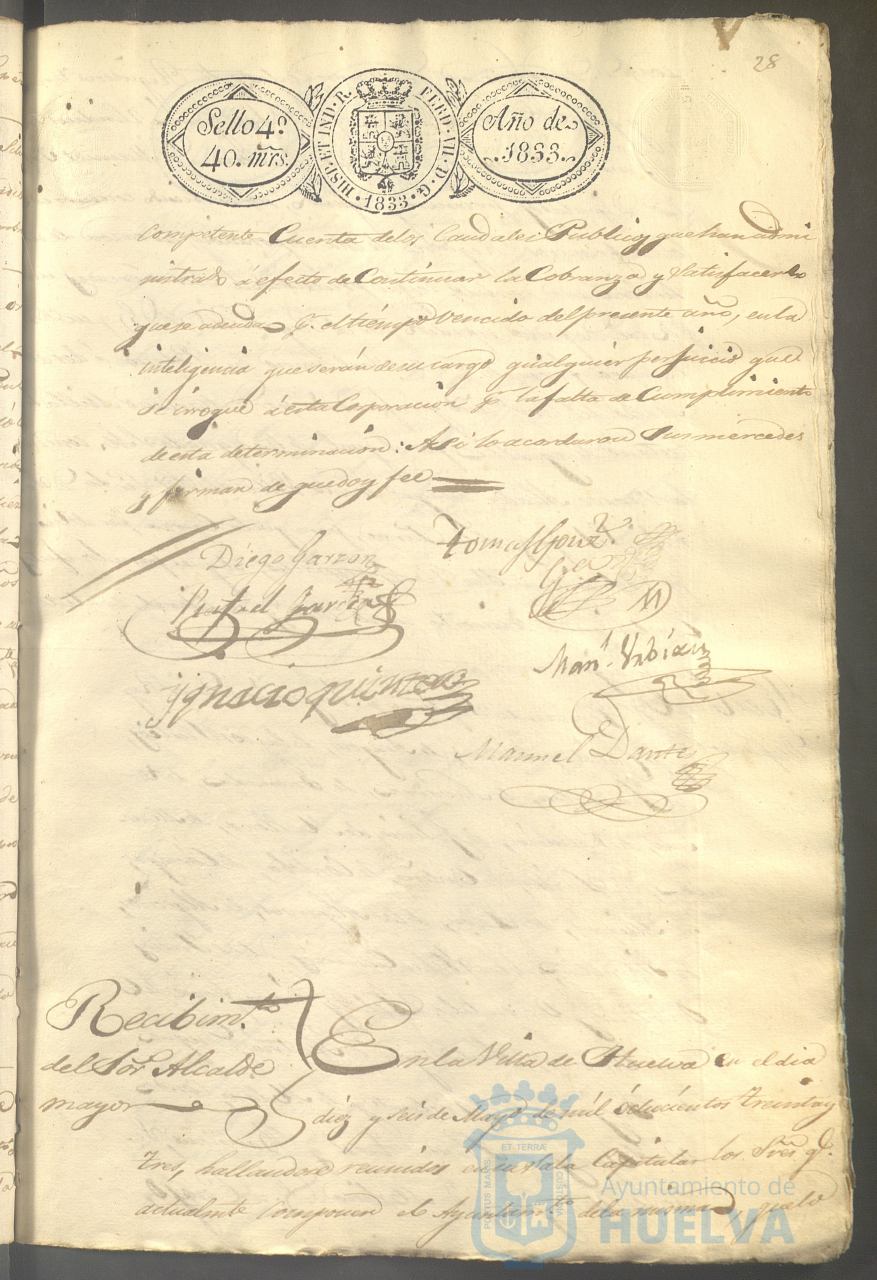 28
Sello 4.º
40. mrs.
HISP. ET IND. R. FERD. VII. D. G.
1833
Año de
1833.
Competente Cuenta delos Caudales Publicos que han admi
nistrado á efecto de Continuar la Cobranza y Satisfacer lo
que se adeuda p.r el tiempo Vencido del presente año, en la
inteligencia que serán de su cargo qualquier perjuicio que
se irrogue á esta Corporacion p.r la falta de Cumplimiento
de esta determinacion: Asi lo acordaron Sus mercedes
y firman de que doy fee
Diego Garzon
Tomas Gonz.z
Rafael Garcia
Man.l Urbian
Ygnacio quintero
Manuel Dante
Recibim.to
del Sor. Alcalde
mayor
En la Villa de Huelva en el dia
diez y seis de Mayo de mil ochocientos treinta y
tres, hallandose reunidos en su Sala Capitular los Sres. q.e
actualmte. Componen el Ayuntam.to de la misma, quelo
PORTUS MARIS ET TERRÆ CUSTODIA
Ayuntamiento de
HUELVA